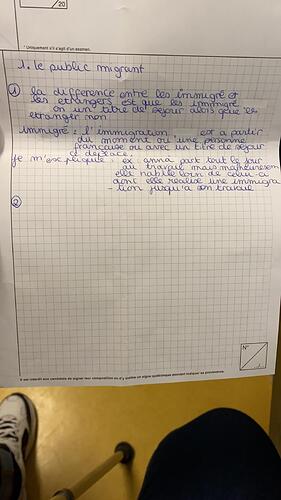 /20
* Uniquement s'il s'agit d'un examen.
1. le public migrant
① la difference entre les immigré et
les etrangers est que les immigré
on un titre de sejour alors que les
etranger non
immigré : l'immigration est a partir
du moment ou une personne
française ou avec un titre de sejour
ce deplace.
je m'explique : ex anna part tout le jour
au travail mais malheuresem
elle habite loin de celui-ci
dont elle realise une immigra
-tion jusqu'a son travail
②
N°
Il est interdit aux candidats de signer leur composition ou d'y mettre un signe quelconque pouvant indiquer sa provenance.